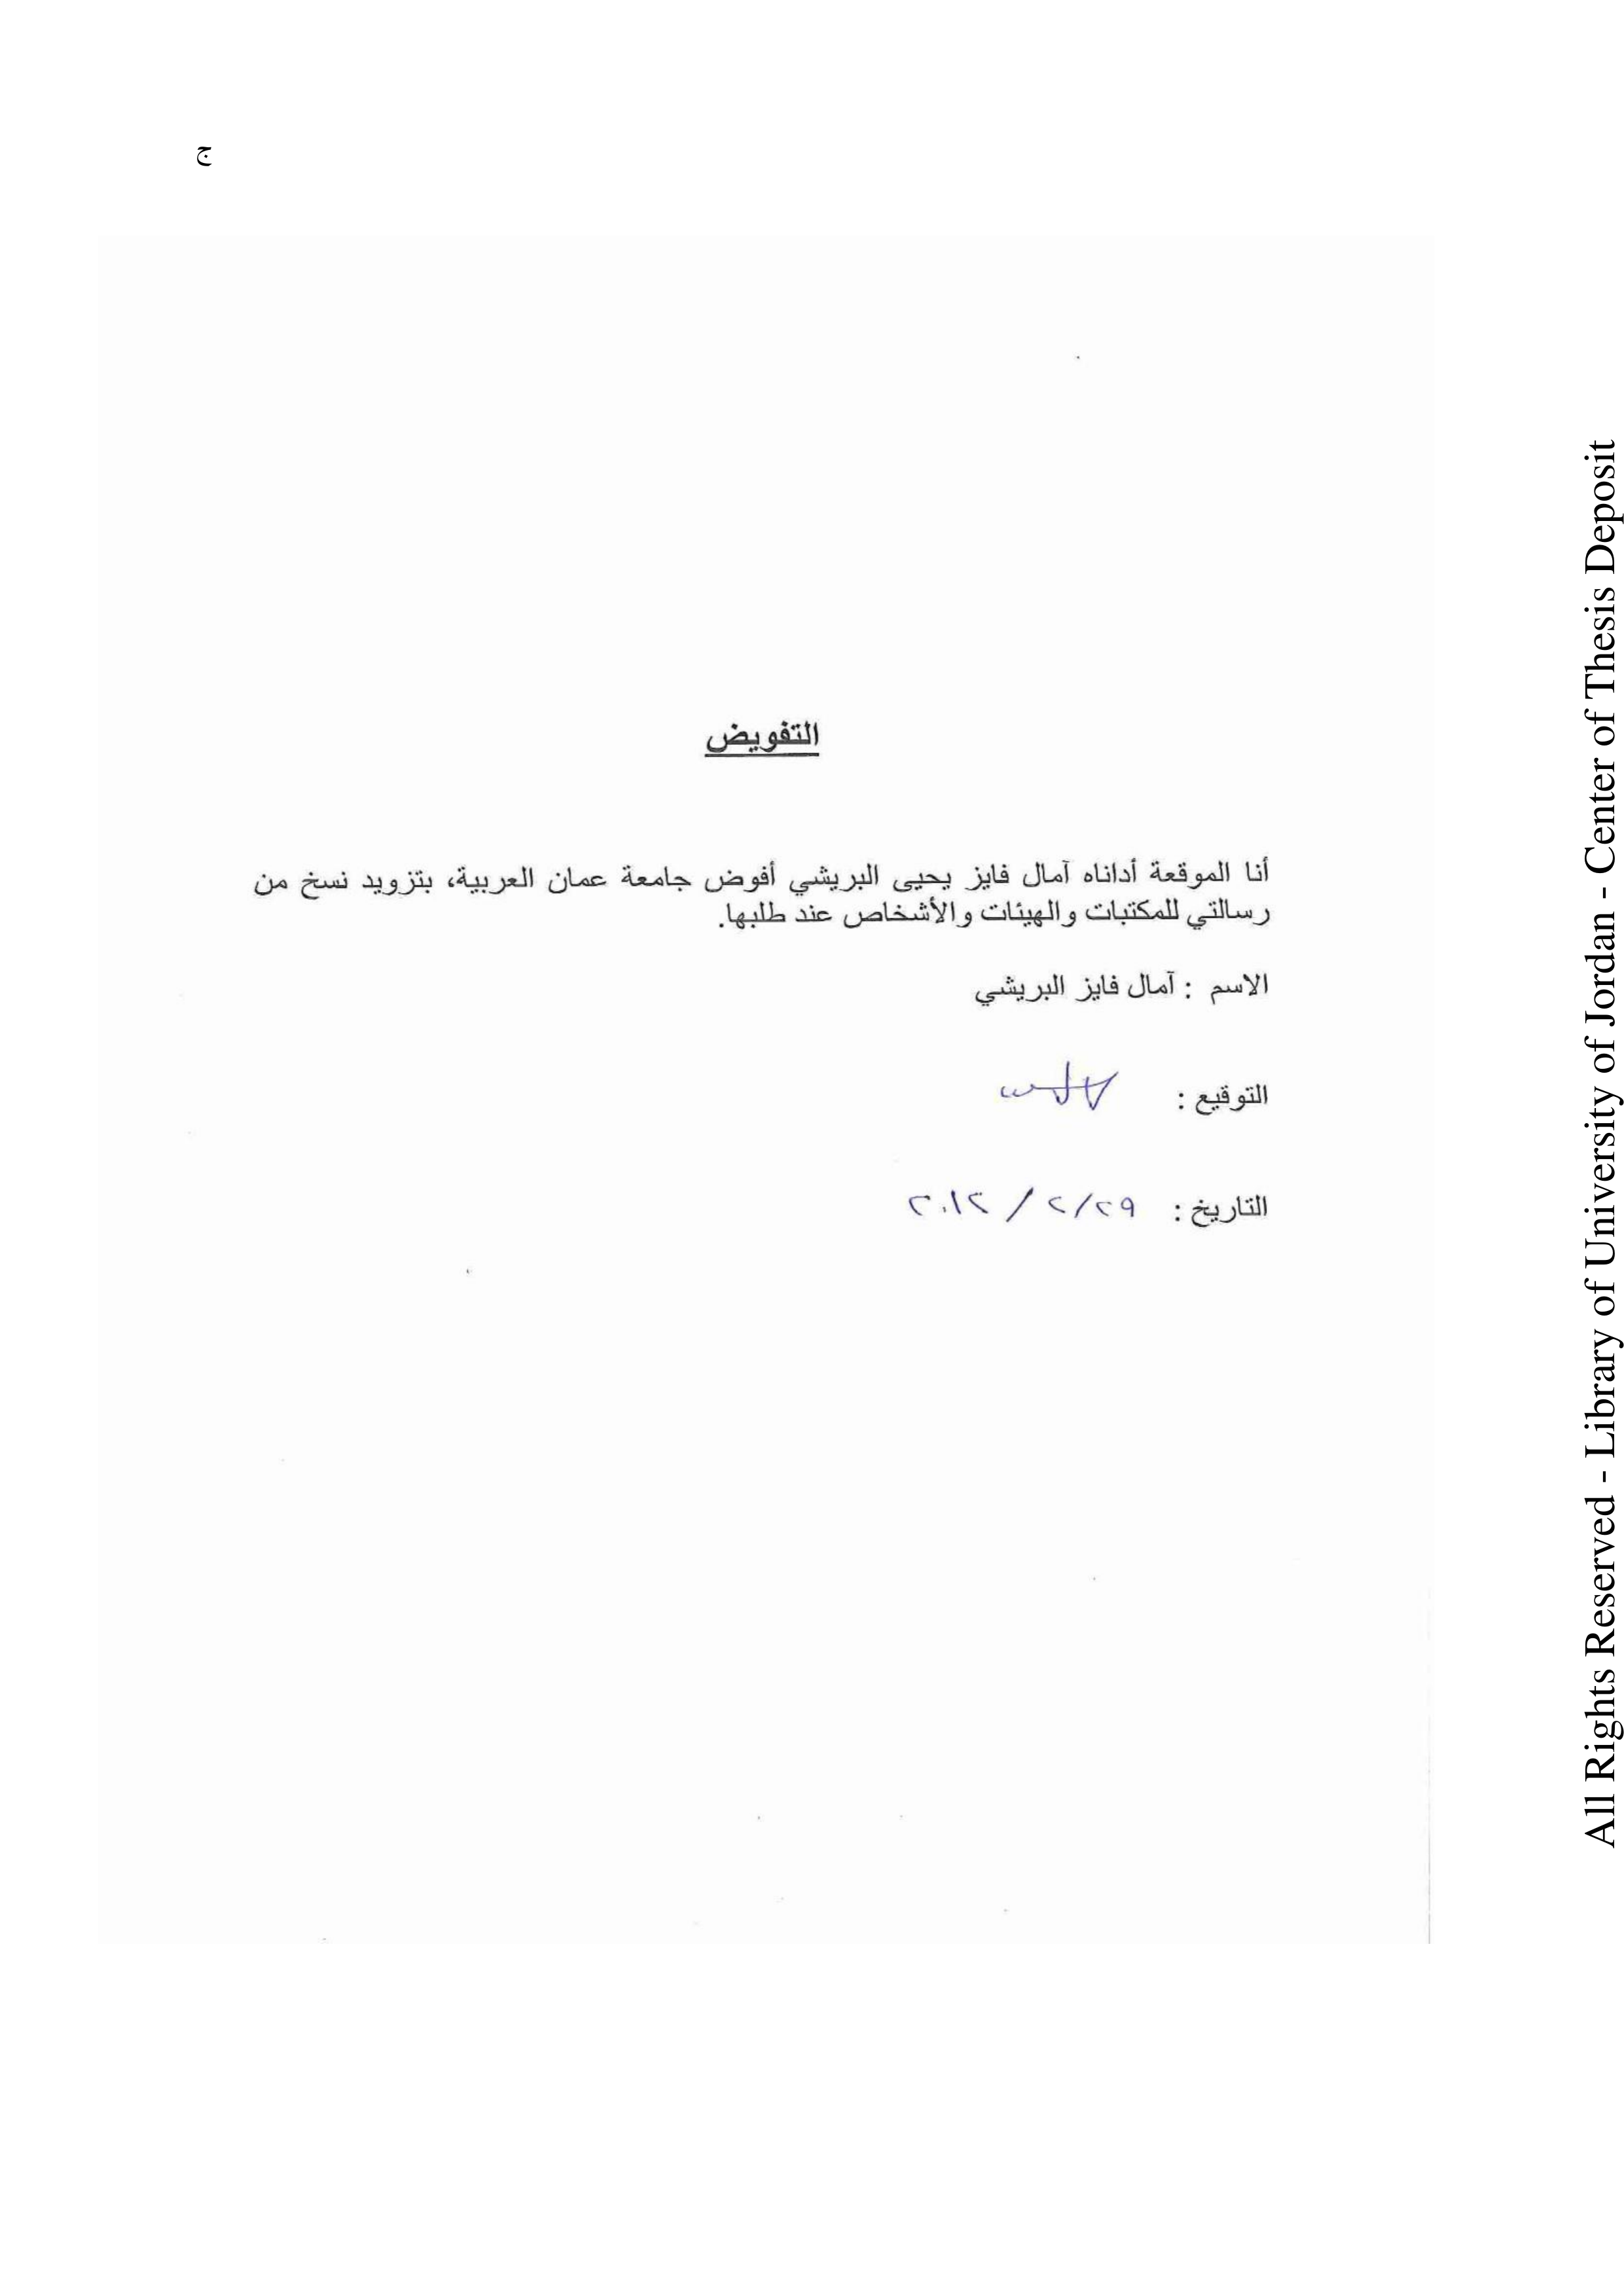 ج
التفويض
أنا الموقعة أداناه آمال فايز يحيى البريشي أفوض جامعة عمان العربية، بتزويد نسخ من
رسالتي للمكتبات والهيئات والأشخاص عند طلبها.
الاسم : آمال فايز البريشي
التوقيع :
التاريخ : ٢٩/٢/٢٠١٢
All Rights Reserved - Library of University of Jordan - Center of Thesis Deposit